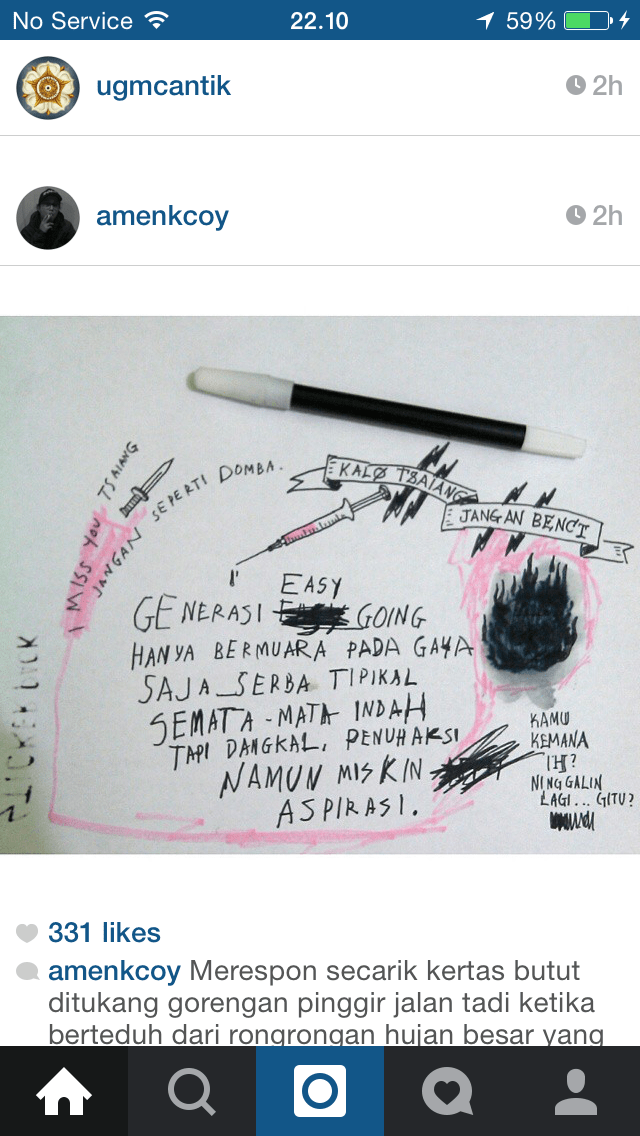 No Service 22.10 59%
ugmcantik 2h
amenkcoy 2h
I MISS YOU TSAIANG
JANGAN SEPERTI DOMBA.
KALO TSAIANG
JANGAN BENCI
EASY
GENERASI GOING
HANYA BERMUARA PADA GAYA
SAJA SERBA TIPIKAL
SEMATA-MATA INDAH
TAPI DANGKAL, PENUH AKSI
NAMUN MISKIN
ASPIRASI.
KAMU
KEMANA
IH?
NINGGALIN
LAGI... GITU?
331 likes
amenkcoy Merespon secarik kertas butut
ditukang gorengan pinggir jalan tadi ketika
berteduh dari rongrongan hujan besar yang